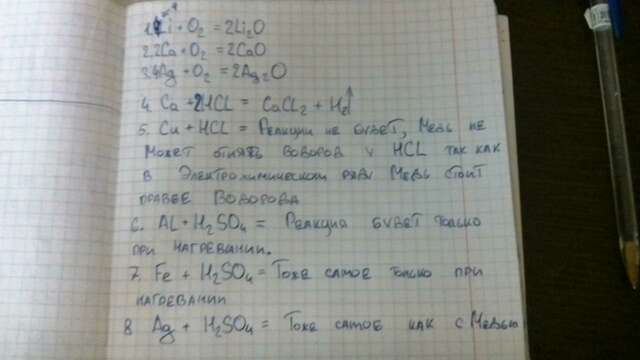 1. 4Li + O₂ = 2Li₂O
2. 2Ca + O₂ = 2CaO
3. 4Ag + O₂ = 2Ag₂O
4. Ca + 2HCL = CaCL₂ + H₂↑
5. Cu + HCL = Реакции не будет, Медь не
может отнять водород у HCL так как
в электрохимическом ряду Медь стоит
правее водорода
6. AL + H₂SO₄ = Реакция будет только
при нагревании.
7. Fe + H₂SO₄ = Тоже самое только при
нагревании
8 Ag + H₂SO₄ = Тоже самое как с Медью